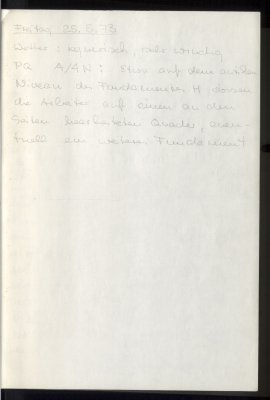 Freitag, 25.5.73
Wetter: regnerisch, sehr windig
PQ A/4N: Etwa auf dem antiken
Niveau des Fundamentes H stossen
die Arbeiter auf einen an den
Seiten bearbeiteten Quader, even-
tuell ein weiteres Fundament